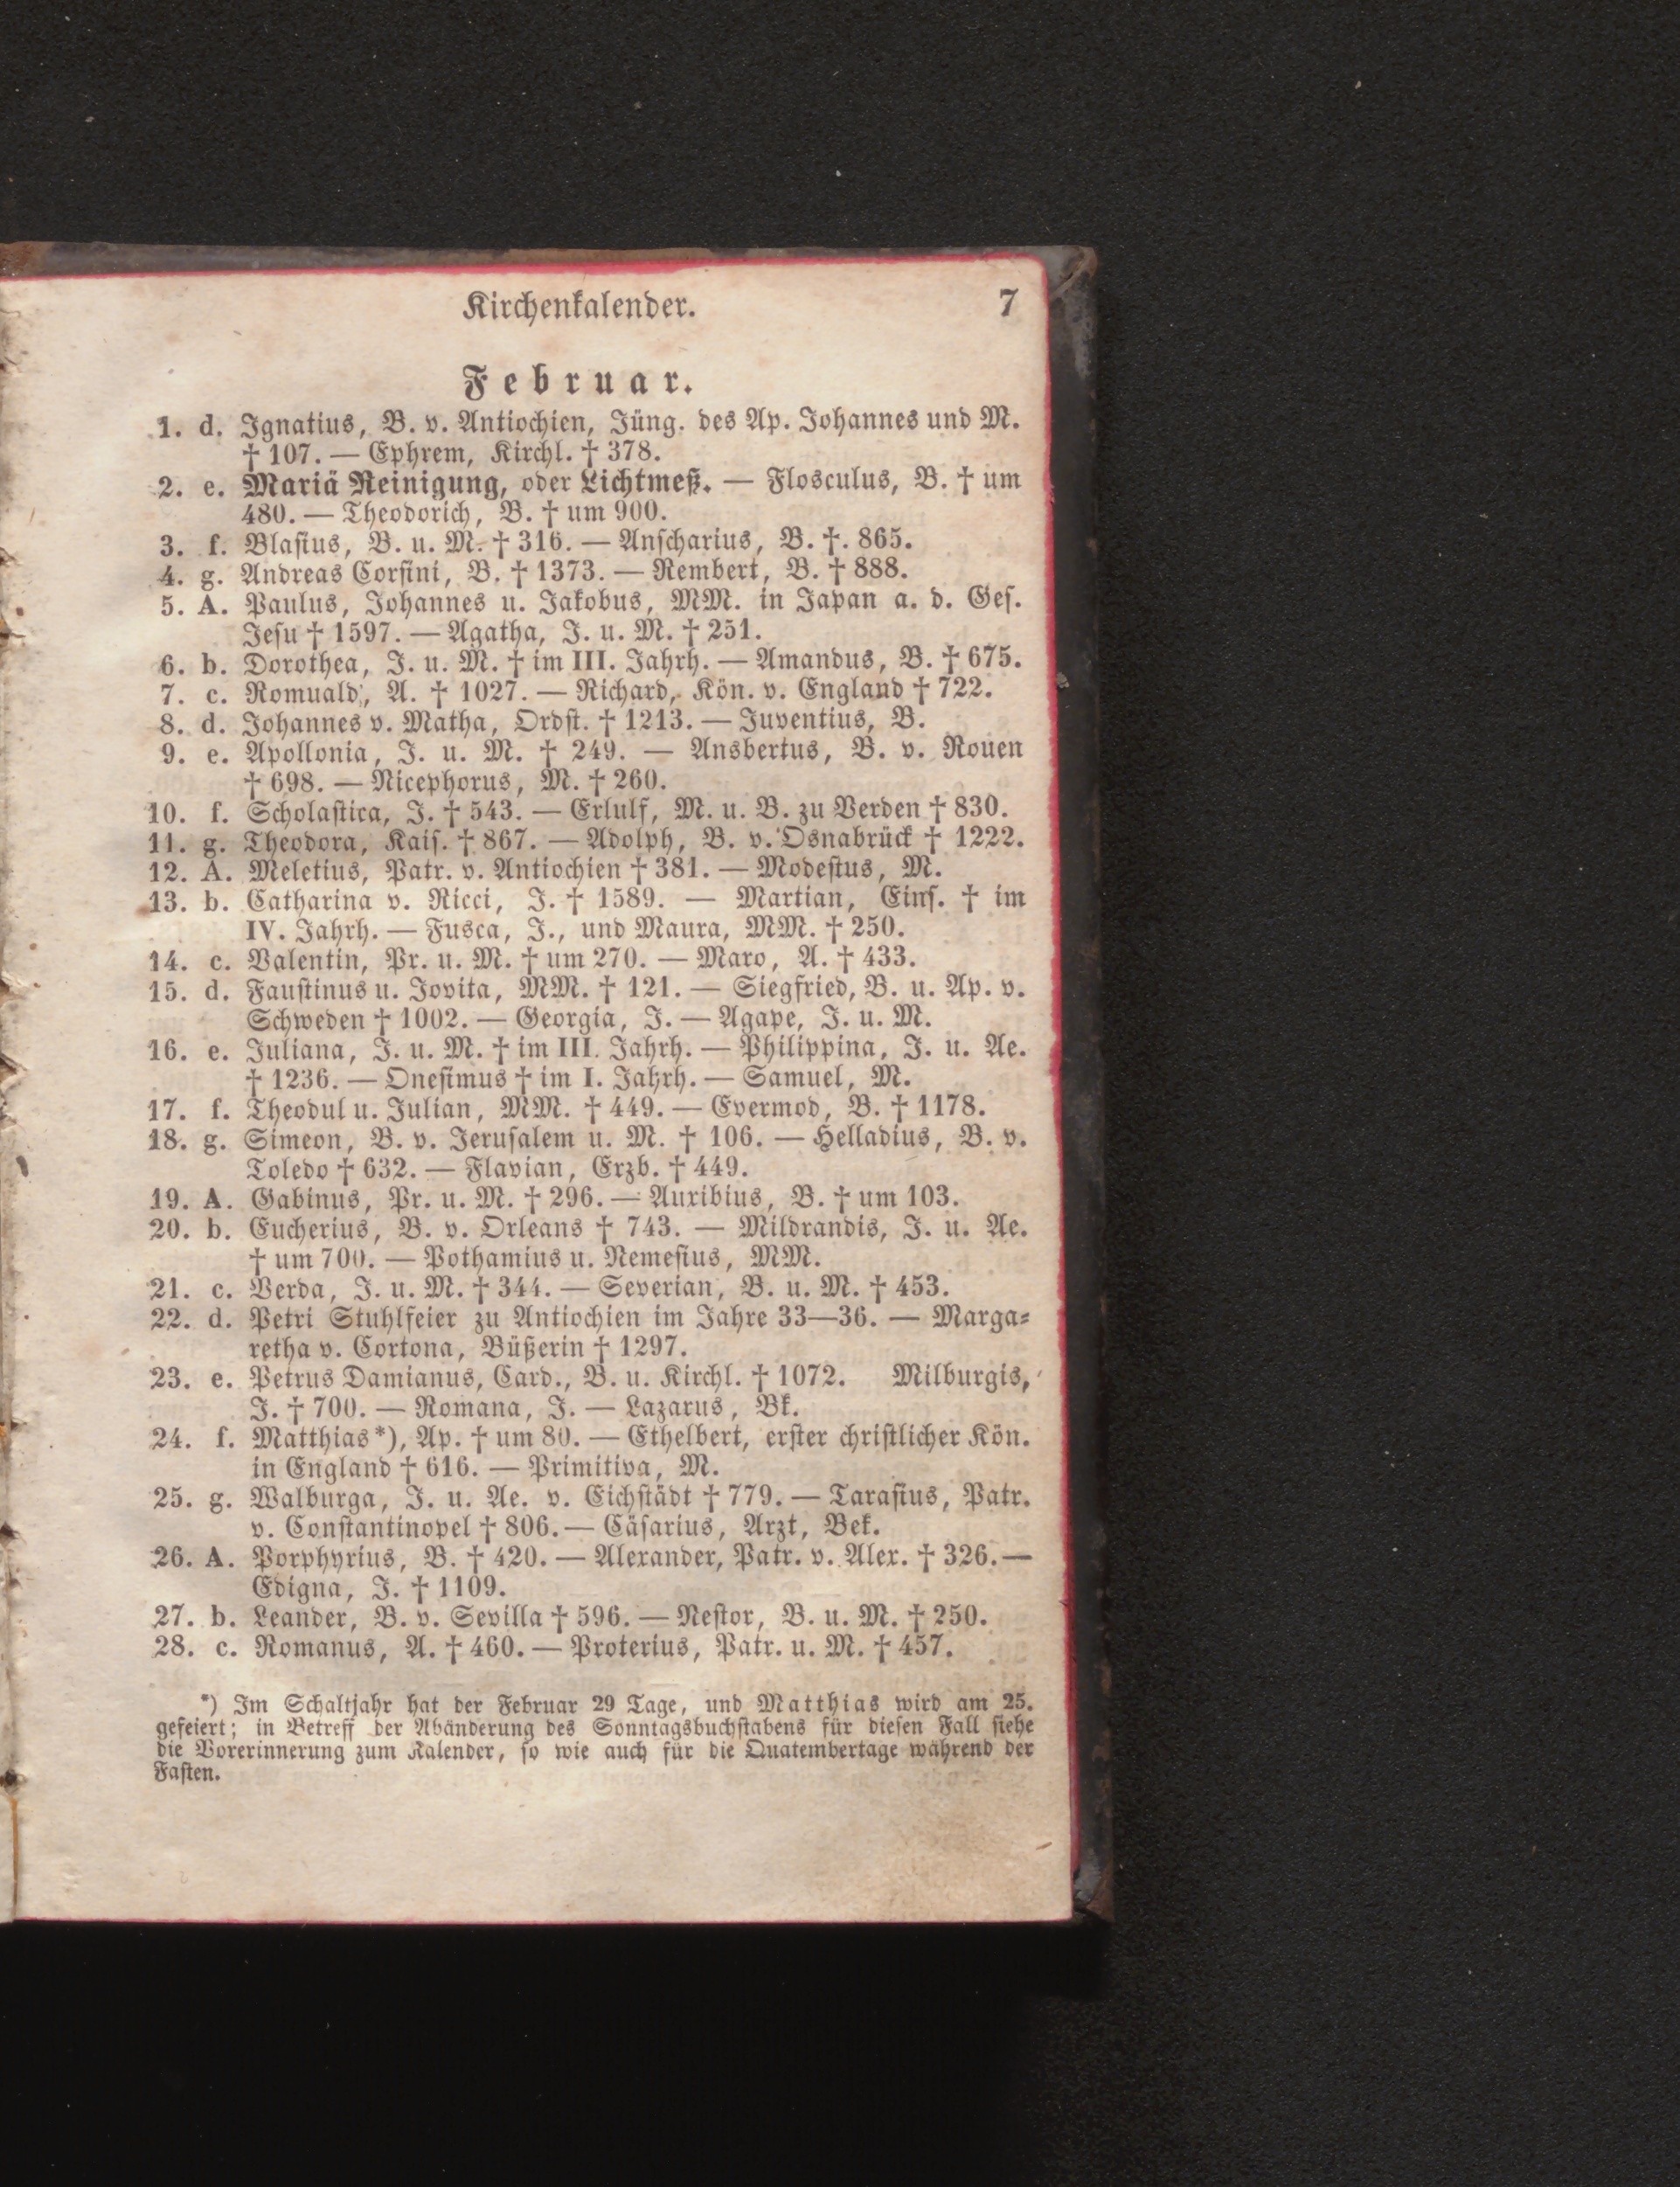 Kirchenkalender. 7
Februar.
1. d. Ignatius, B. v. Antiochien, Jüng. des Ap. Johannes und M.
† 107. — Ephrem, Kirchl. † 378.
2. e. Mariä Reinigung, oder Lichtmeß. — Flosculus, B. † um
480. — Theodorich, B. † um 900.
3. f. Blasius, B. u. M. † 316. — Anscharius, B. †. 865.
4. g. Andreas Corsini, B. † 1373. — Rembert, B. † 888.
5. A. Paulus, Johannes u. Jakobus, MM. in Japan a. d. Ges.
Jesu † 1597. — Agatha, J. u. M. † 251.
6. b. Dorothea, J. u. M. † im III. Jahrh. — Amandus, B. † 675.
7. c. Romuald, A. † 1027. — Richard, Kön. v. England † 722.
8. d. Johannes v. Matha, Ordst. † 1213. — Juventius, B.
9. e. Apollonia, J. u. M. † 249. — Ansbertus, B. v. Rouen
† 698. — Nicephorus, M. † 260.
10. f. Scholastica, J. † 543. — Erlulf, M. u. B. zu Verden † 830.
11. g. Theodora, Kais. † 867. — Adolph, B. v. Osnabrück † 1222.
12. A. Meletius, Patr. v. Antiochien † 381. — Modestus, M.
13. b. Catharina v. Ricci, J. † 1589. — Martian, Eins. † im
IV. Jahrh. — Fusca, J., und Maura, MM. † 250.
14. c. Valentin, Pr. u. M. † um 270. — Maro, A. † 433.
15. d. Faustinus u. Jovita, MM. † 121. — Siegfried, B. u. Ap. v.
Schweden † 1002. — Georgia, J. — Agape, J. u. M.
16. e. Juliana, J. u. M. † im III. Jahrh. — Philippina, J. u. Ae.
† 1236. — Onesimus † im I. Jahrh. — Samuel, M.
17. f. Theodul u. Julian, MM. † 449. — Evermod, B. † 1178.
18. g. Simeon, B. v. Jerusalem u. M. † 106. — Helladius, B. v.
Toledo † 632. — Flavian, Erzb. † 449.
19. A. Gabinus, Pr. u. M. † 296. — Auxibius, B. † um 103.
20. b. Eucherius, B. v. Orleans † 743. — Mildrandis, J. u. Ae.
† um 700. — Pothamius u. Nemesius, MM.
21. c. Verda, J. u. M. † 344. — Severian, B. u. M. † 453.
22. d. Petri Stuhlfeier zu Antiochien im Jahre 33—36. — Marga-
retha v. Cortona, Büßerin † 1297.
23. e. Petrus Damianus, Card., B. u. Kirchl. † 1072. Milburgis,
J. † 700. — Romana, J. — Lazarus, Bk.
24. f. Matthias*), Ap. † um 80. — Ethelbert, erster christlicher Kön.
in England † 616. — Primitiva, M.
25. g. Walburga, J. u. Ae. v. Eichstädt † 779. — Tarasius, Patr.
v. Constantinopel † 806. — Cäsarius, Arzt, Bek.
26. A. Porphyrius, B. † 420. — Alexander, Patr. v. Alex. † 326. —
Edigna, J. † 1109.
27. b. Leander, B. v. Sevilla † 596. — Nestor, B. u. M. † 250.
28. c. Romanus, A. † 460. — Proterius, Patr. u. M. † 457.
*) Im Schaltjahr hat der Februar 29 Tage, und Matthias wird am 25.
gefeiert; in Betreff der Abänderung des Sonntagsbuchstabens für diesen Fall siehe
die Vorerinnerung zum Kalender, so wie auch für die Quatembertage während der
Fasten.